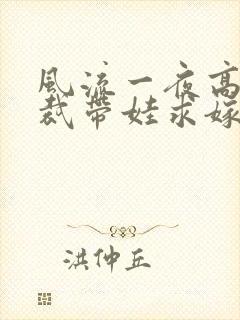 风流一夜高
裁带娃求嫁
洪仲丘